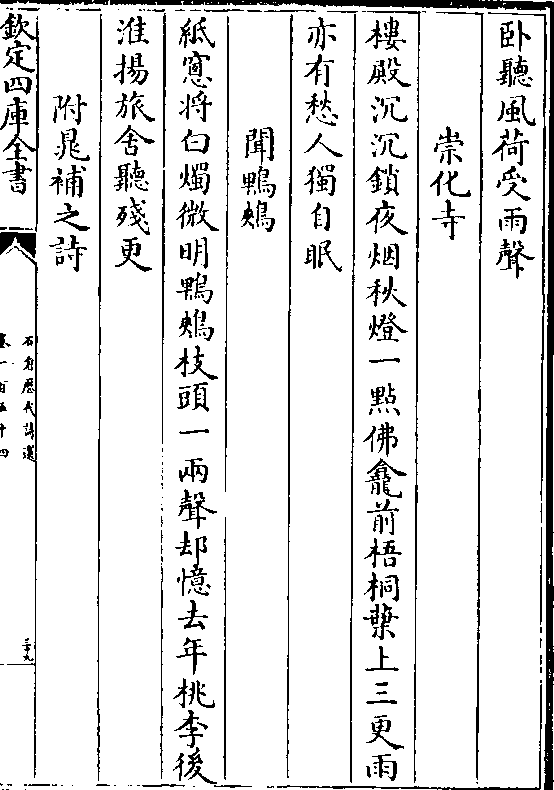 卧聽風荷受雨聲
崇化寺
樓殿沉沉鎖夜烟秋燈一點佛龕前梧桐葉上三更雨
亦有愁人獨自眠
聞鴨鵊
紙窻將白燭微明鴨鵊枝頭一兩聲却憶去年桃李後
淮揚旅舍聽殘更
附晁補之詩
欽定四庫全書
石倉歷代詩選
卷一百五十四
三十九